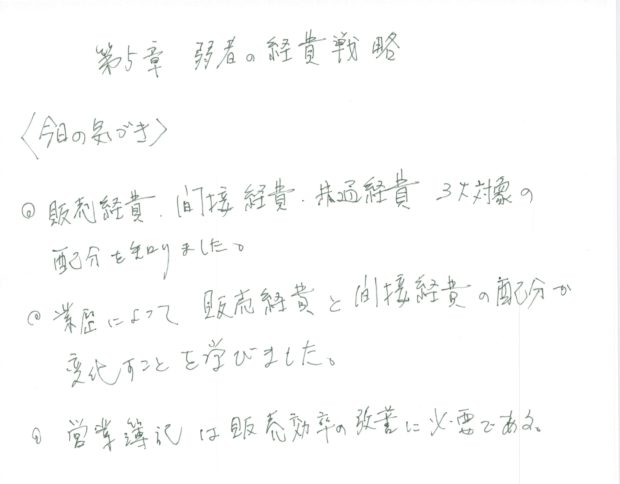 第5章 弱者の経費戦略
〈今日の気づき〉
◎ 販売経費.間接経費.共通経費 3大対象の
配分を知りました。
◎ 業歴によって 販売経費と間接経費の配分が
変化すことを学びました。
◎ 営業簿記は販売効率の改善に必要である。